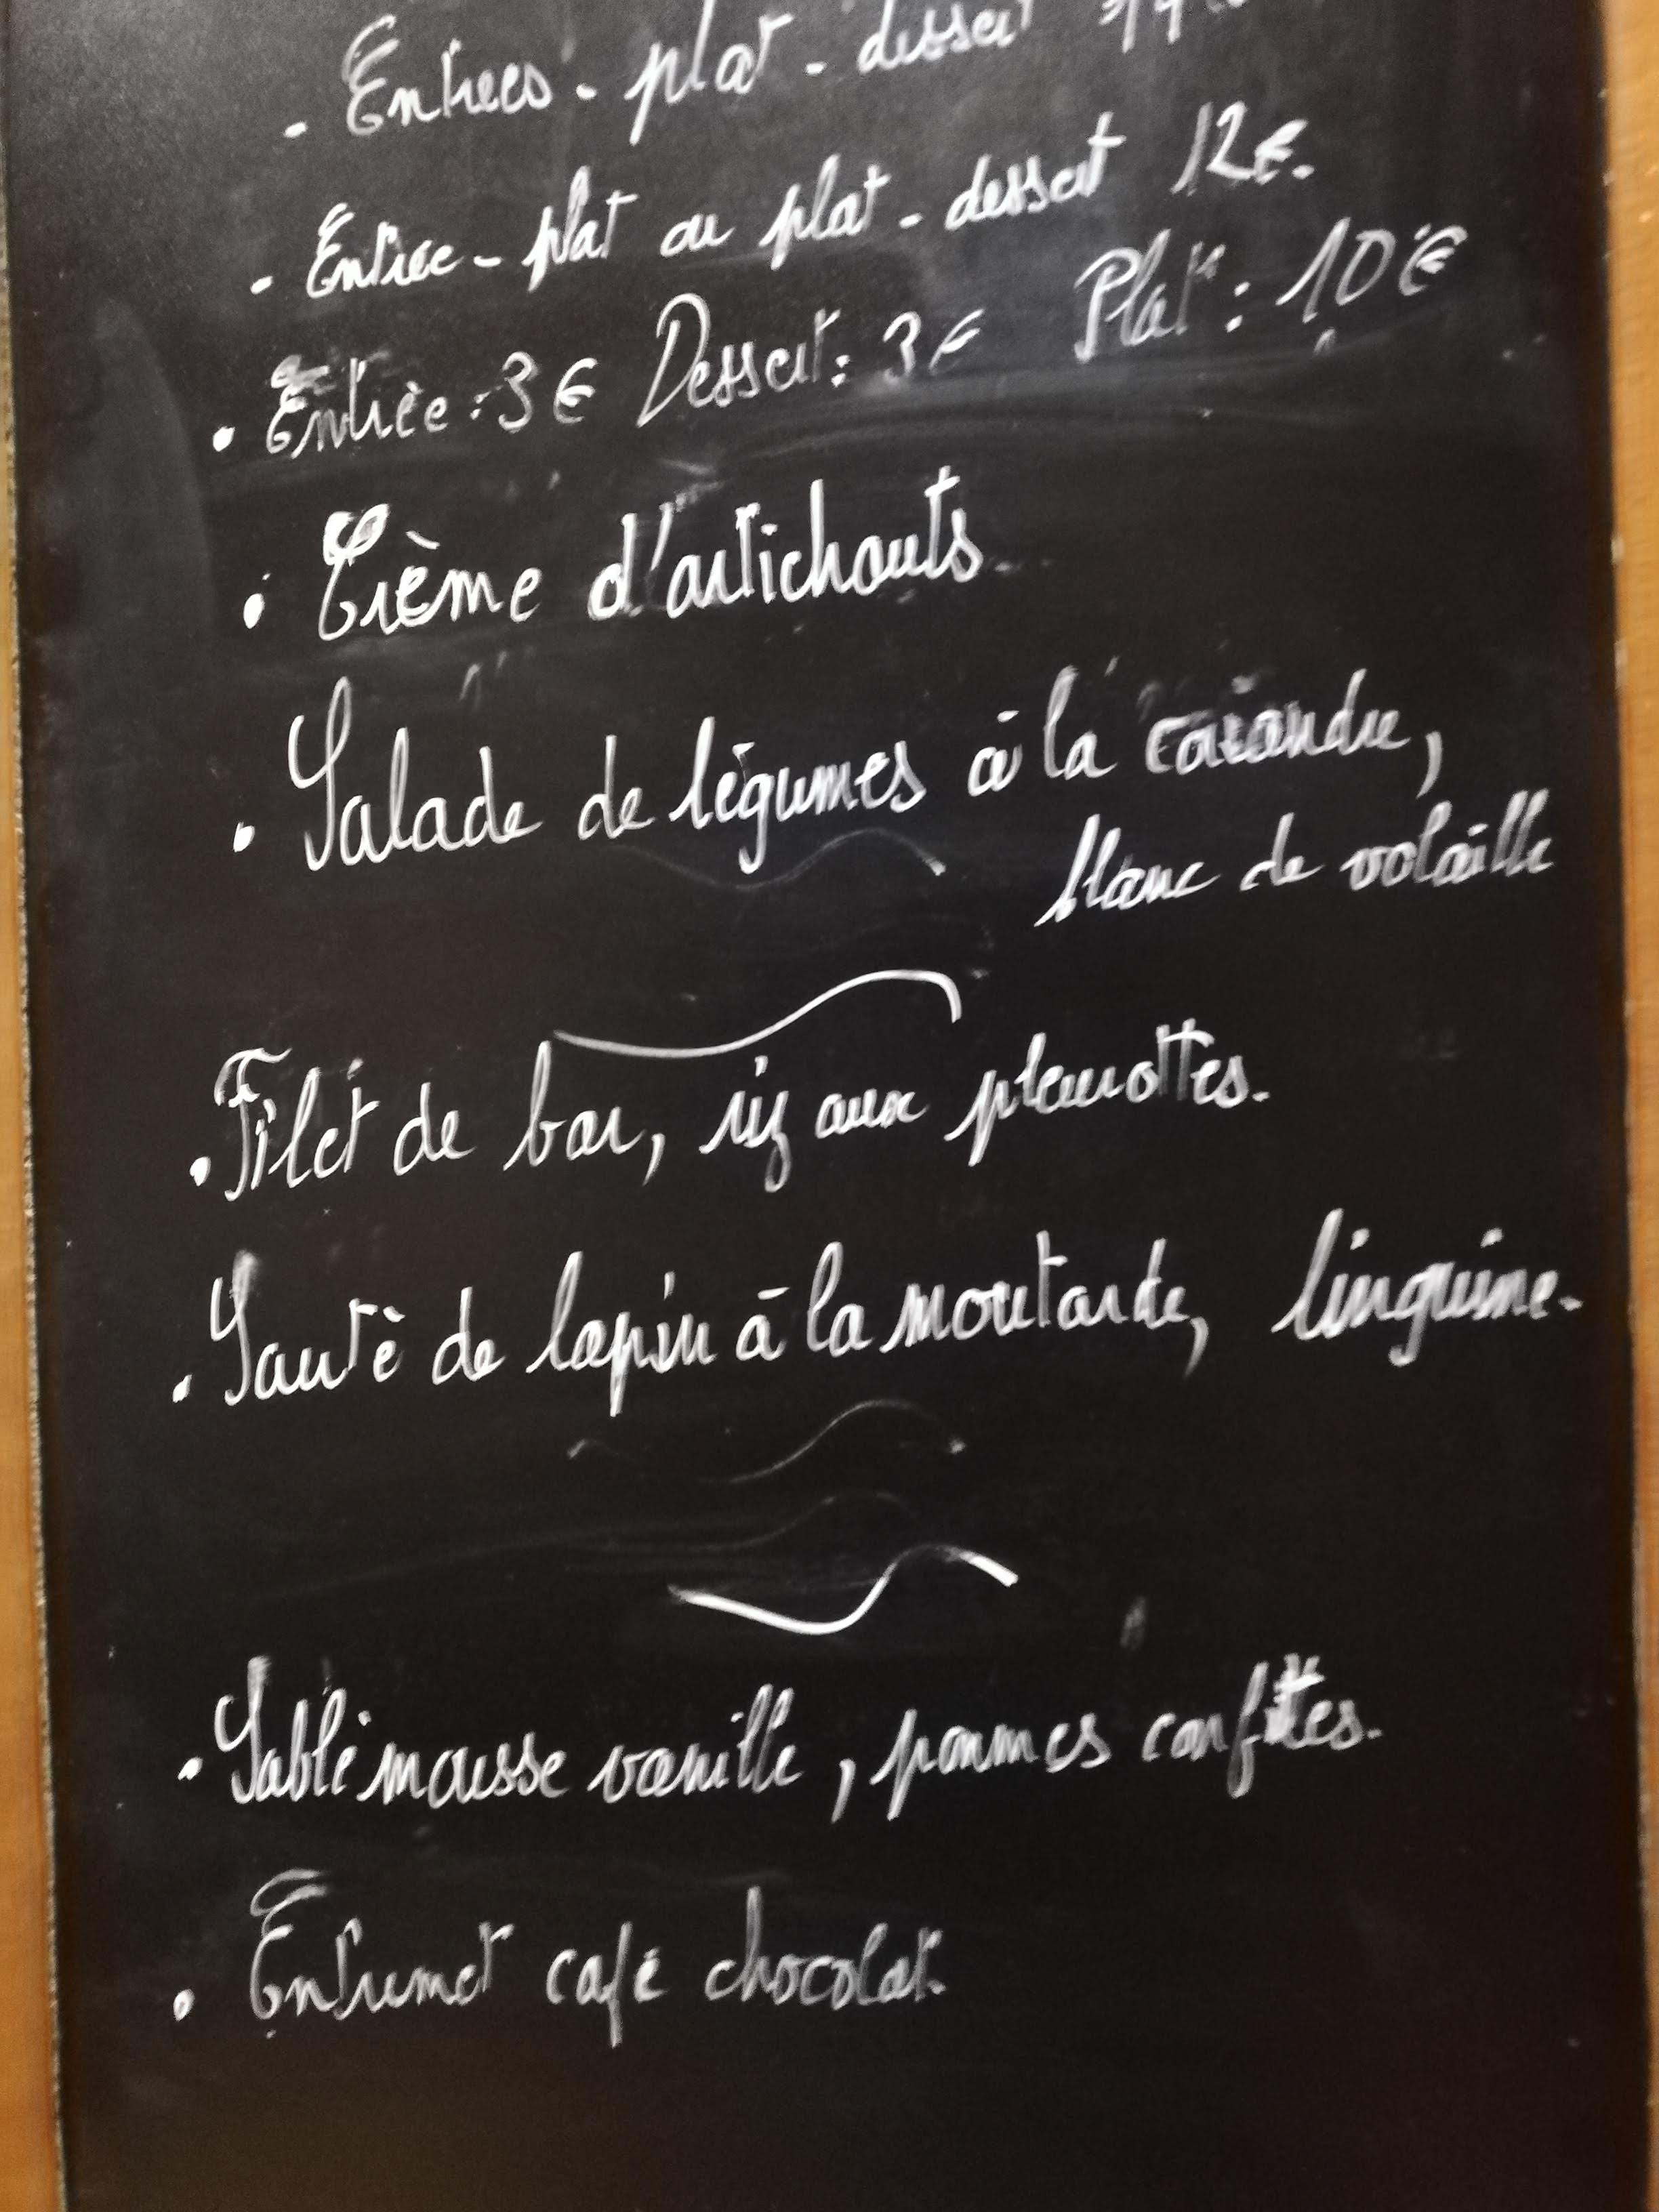 - Entrées - plat - dessert
- Entrée - plat ou plat - dessert 12€.
• Entrée : 3€ Dessert : 3€ Plat : 10€
• Crème d'artichauts.
• Salade de légumes à la coriandre,
blanc de volaille
• Filet de bar, riz aux pleurottes.
• Sauté de lapin à la moutarde, linguine.
• Sablé mousse vanille, pommes confites.
• Entremet café chocolat.